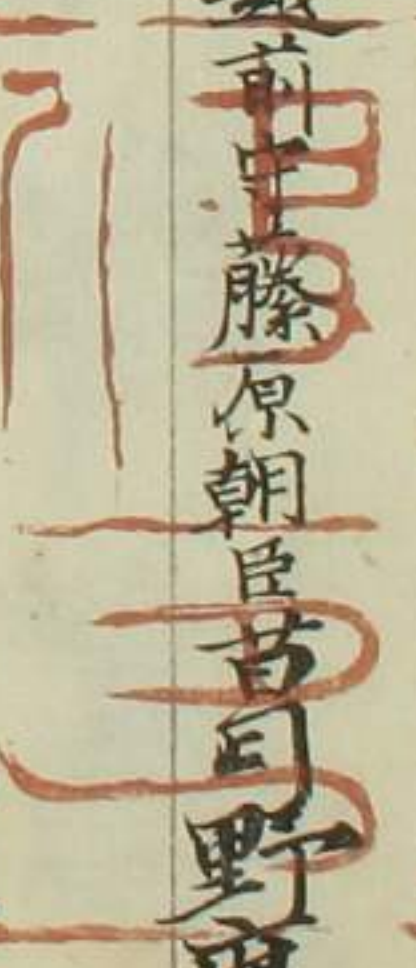 越前守藤原朝臣昔同野